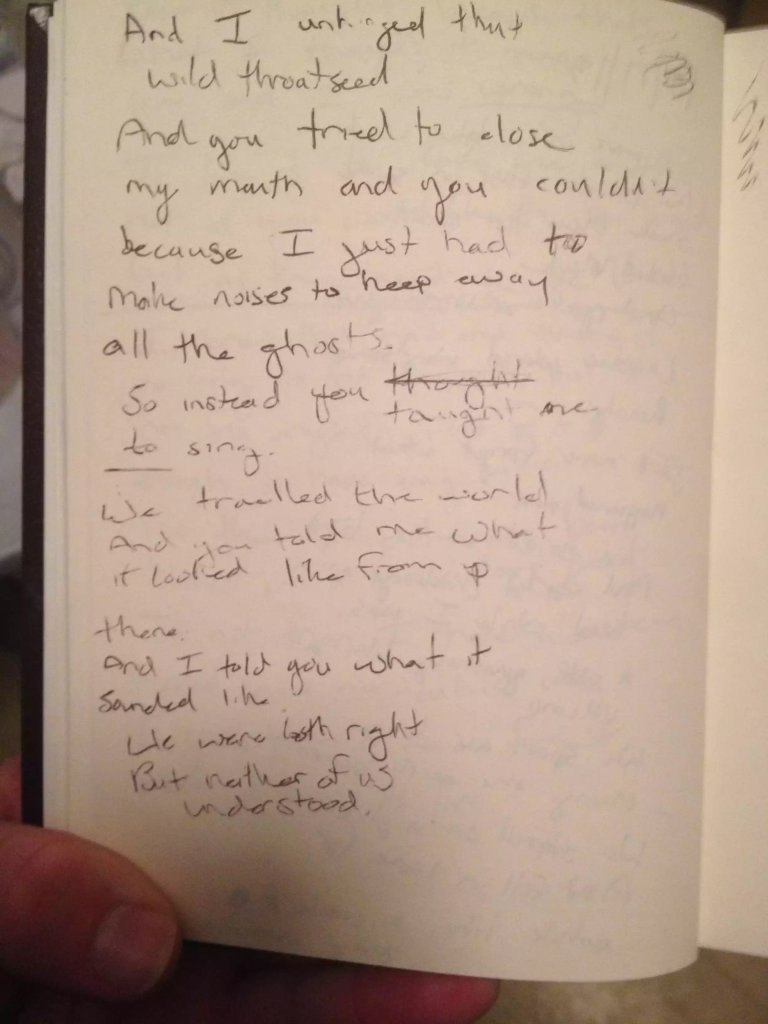 And I unhinged that
wild throatseed
And you tried to close
my mouth and you couldn't
because I just had to
make noises to keep away
all the ghosts.
So instead you thought
taught me
to sing.
We travelled the world
And you told me what
it looked like from up
there.
And I told you what it
sounded like.
We were both right
But neither of us
understood.